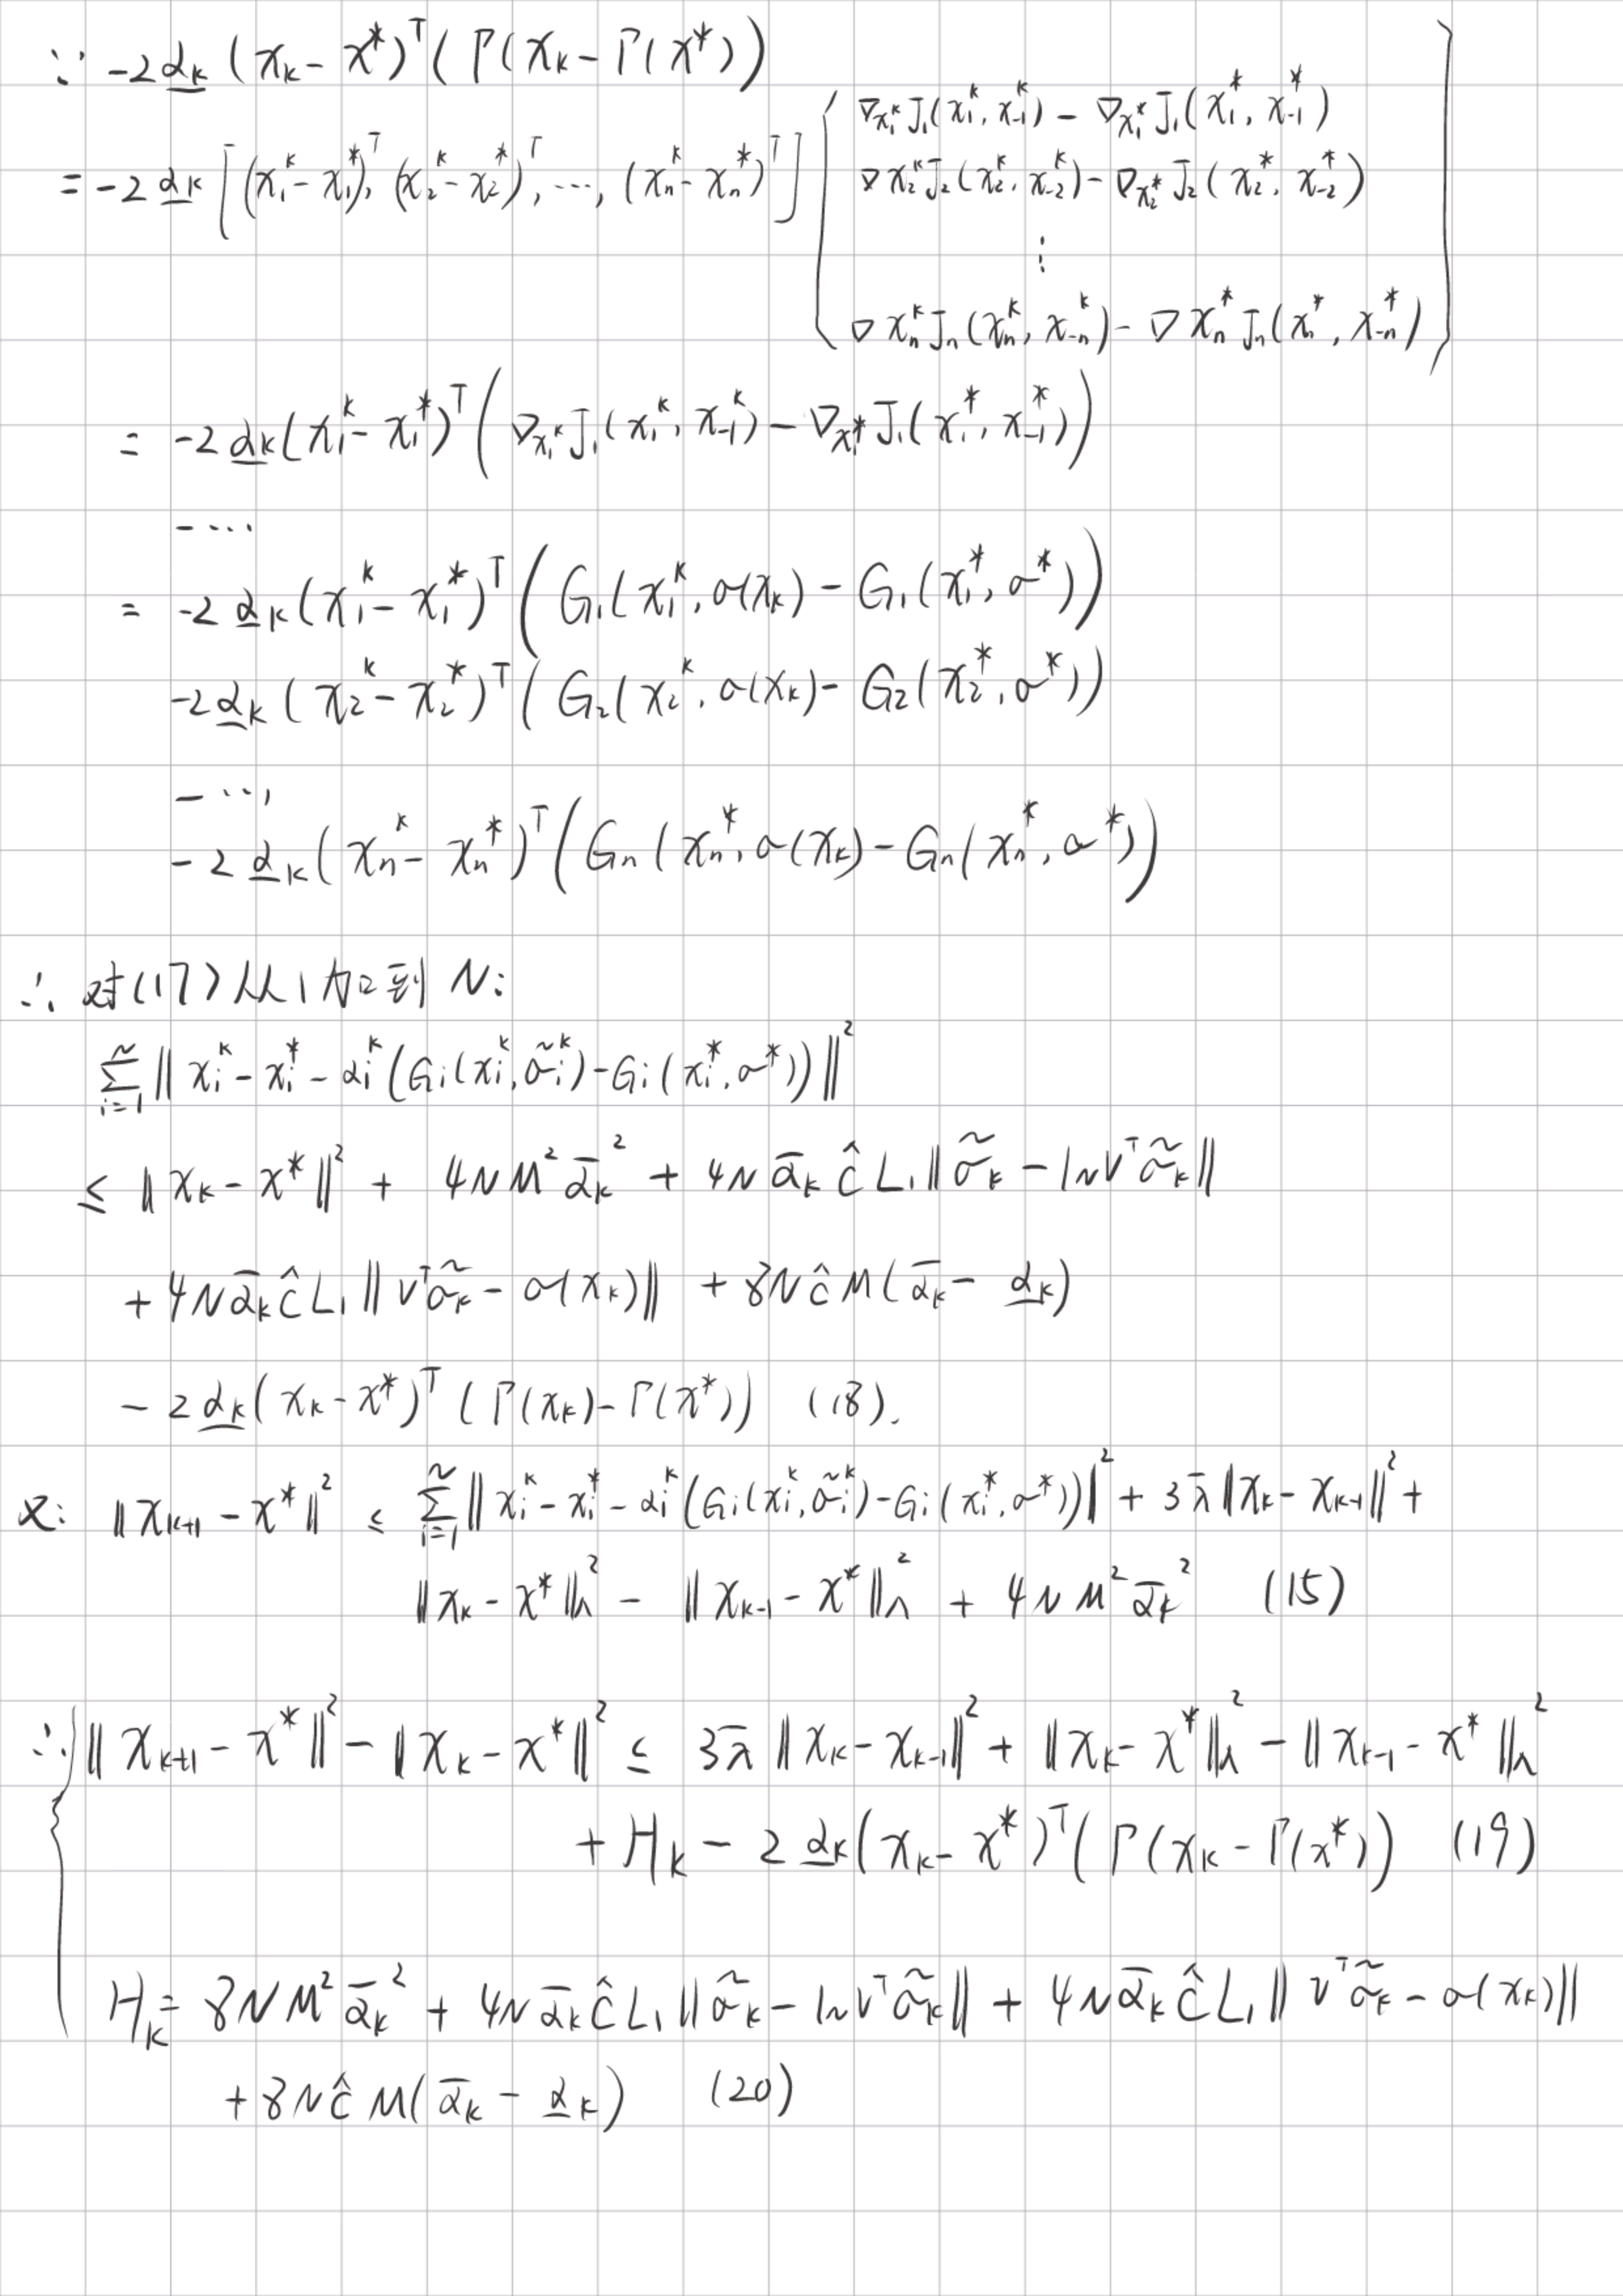 ∵ -2α̲ₖ (xₖ - x*)ᵀ (Γ(xₖ - Γ(x*))
= -2 α̲ₖ [(x₁ᵏ - x₁*)ᵀ, (x₂ᵏ - x₂*)ᵀ, ⋯, (xₙᵏ - xₙ*)ᵀ]
∇x₁ᵏ J₁(x₁ᵏ, x₋₁ᵏ) - ∇x₁* J₁(x₁*, x₋₁*)
∇x₂ᵏ J₂(x₂ᵏ, x₋₂ᵏ) - ∇x₂* J₂(x₂*, x₋₂*)
⋮
∇xₙᵏ Jₙ(xₙᵏ, x₋ₙᵏ) - ∇xₙ* Jₙ(xₙ*, x₋ₙ*)
= -2 α̲ₖ (x₁ᵏ - x₁*)ᵀ (∇x₁ᵏ J₁(x₁ᵏ, x₋₁ᵏ) - ∇x₁* J₁(x₁*, x₋₁*))
- ⋯
= -2 α̲ₖ (x₁ᵏ - x₁*)ᵀ (G₁(x₁ᵏ, σ(xₖ) - G₁(x₁*, σ*))
-2 α̲ₖ (x₂ᵏ - x₂*)ᵀ (G₂(x₂ᵏ, σ(xₖ) - G₂(x₂*, σ*))
- ⋯,
-2 α̲ₖ (xₙᵏ - xₙ*)ᵀ (Gₙ(xₙ*, σ(xₖ) - Gₙ(xₙ*, σ*))
∴ 对(17)从1加到N:
∑ᵢ₌₁ᴺ ‖xᵢᵏ - xᵢ* - αᵢᵏ (Gᵢ(xᵢᵏ, σ̃ᵢᵏ) - Gᵢ(xᵢ*, σ*))‖²
≤ ‖xₖ - x*‖² + 4NM²ᾱₖ² + 4Nᾱₖ ĉ L₁‖σ̃ₖ - 1_N vᵀσ̃ₖ‖
+ 4Nᾱₖ ĉ L₁‖vᵀσ̃ₖ - σ(xₖ)‖ + 8NĉM(ᾱₖ - α̲ₖ)
- 2α̲ₖ (xₖ - x*)ᵀ (Γ(xₖ) - Γ(x*)) (18).
又: ‖xₖ₊₁ - x*‖² ≤ ∑ᵢ₌₁ᴺ ‖xᵢᵏ - xᵢ* - αᵢᵏ (Gᵢ(xᵢᵏ, σ̃ᵢᵏ) - Gᵢ(xᵢ*, σ*))‖² + 3λ̄‖xₖ - xₖ₋₁‖² +
‖xₖ - x*‖²_Λ - ‖xₖ₋₁ - x*‖²_Λ + 4NM²ᾱₖ² (15)
∴ ‖xₖ₊₁ - x*‖² - ‖xₖ - x*‖² ≤ 3λ̄‖xₖ - xₖ₋₁‖² + ‖xₖ - x*‖²_Λ - ‖xₖ₋₁ - x*‖²_Λ
+ Hₖ - 2α̲ₖ (xₖ - x*)ᵀ (Γ(xₖ - Γ(x*)) (19)
Hₖ = 8NM²ᾱₖ² + 4Nᾱₖ ĉ L₁‖σ̃ₖ - 1_N vᵀσ̃ₖ‖ + 4Nᾱₖ ĉ L₁‖vᵀσ̃ₖ - σ(xₖ)‖
+ 8NĉM(ᾱₖ - α̲ₖ) (20)